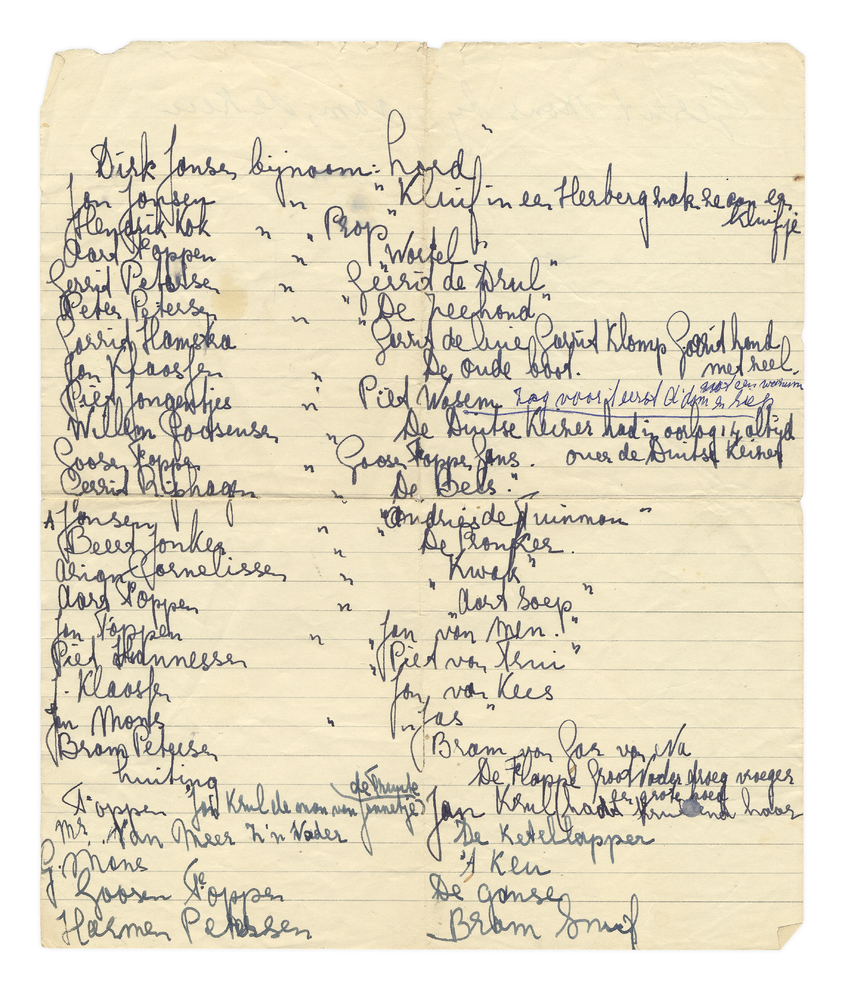 Dirk Jansen bijnaam: hoed"
Jan Jansen " "Kluif in een Herberg zak ze aan en
kluifje
Hendrik Kok " "Prop"
Aart Foppen "Wortel"
Gerrit Petersen " "Gerrit de Drul"
Peter Petersen " "De zeehond"
Gerrit Hamstra "Gerrit de luie Gerrit Klomp Gerrit hond
met zeel.
Jan Klaassen " De oude boot.
Piet Jongentjes " Piet Wasem zag voor 't eerst damp
Willem Goosensen " De Duitse Keizer had in oorlog 14 altijd
over de Duitse Keizer
Goosen Foppen " Goosen Foppe Jans.
Gerrit Riphagen " De Bels."
A Jansen " "Andries de Tuinman"
Beert Jonker De Pronker.
Arian Cornelissen " "Kwak"
Aart Foppen " "Aart Soep"
Jan Foppen " "Jan van Men."
Piet Hannessen "Piet van Trui"
J. Klaassen Jan van Kees
Jan Mons " "Jas"
Bram Petersen Bram van Jas van Na
huiting De Flappe Groot Vader droeg vroeger
een grote hoed
Foppen "Jan Krul de man van Jannetje de Truite Jan Krul had haar
Mr. Van Meer z'n Vader De Ketellapper
G. Mons 'A Keu
Goosen Foppen De ganse
Harmen Petersen Bram Snuif